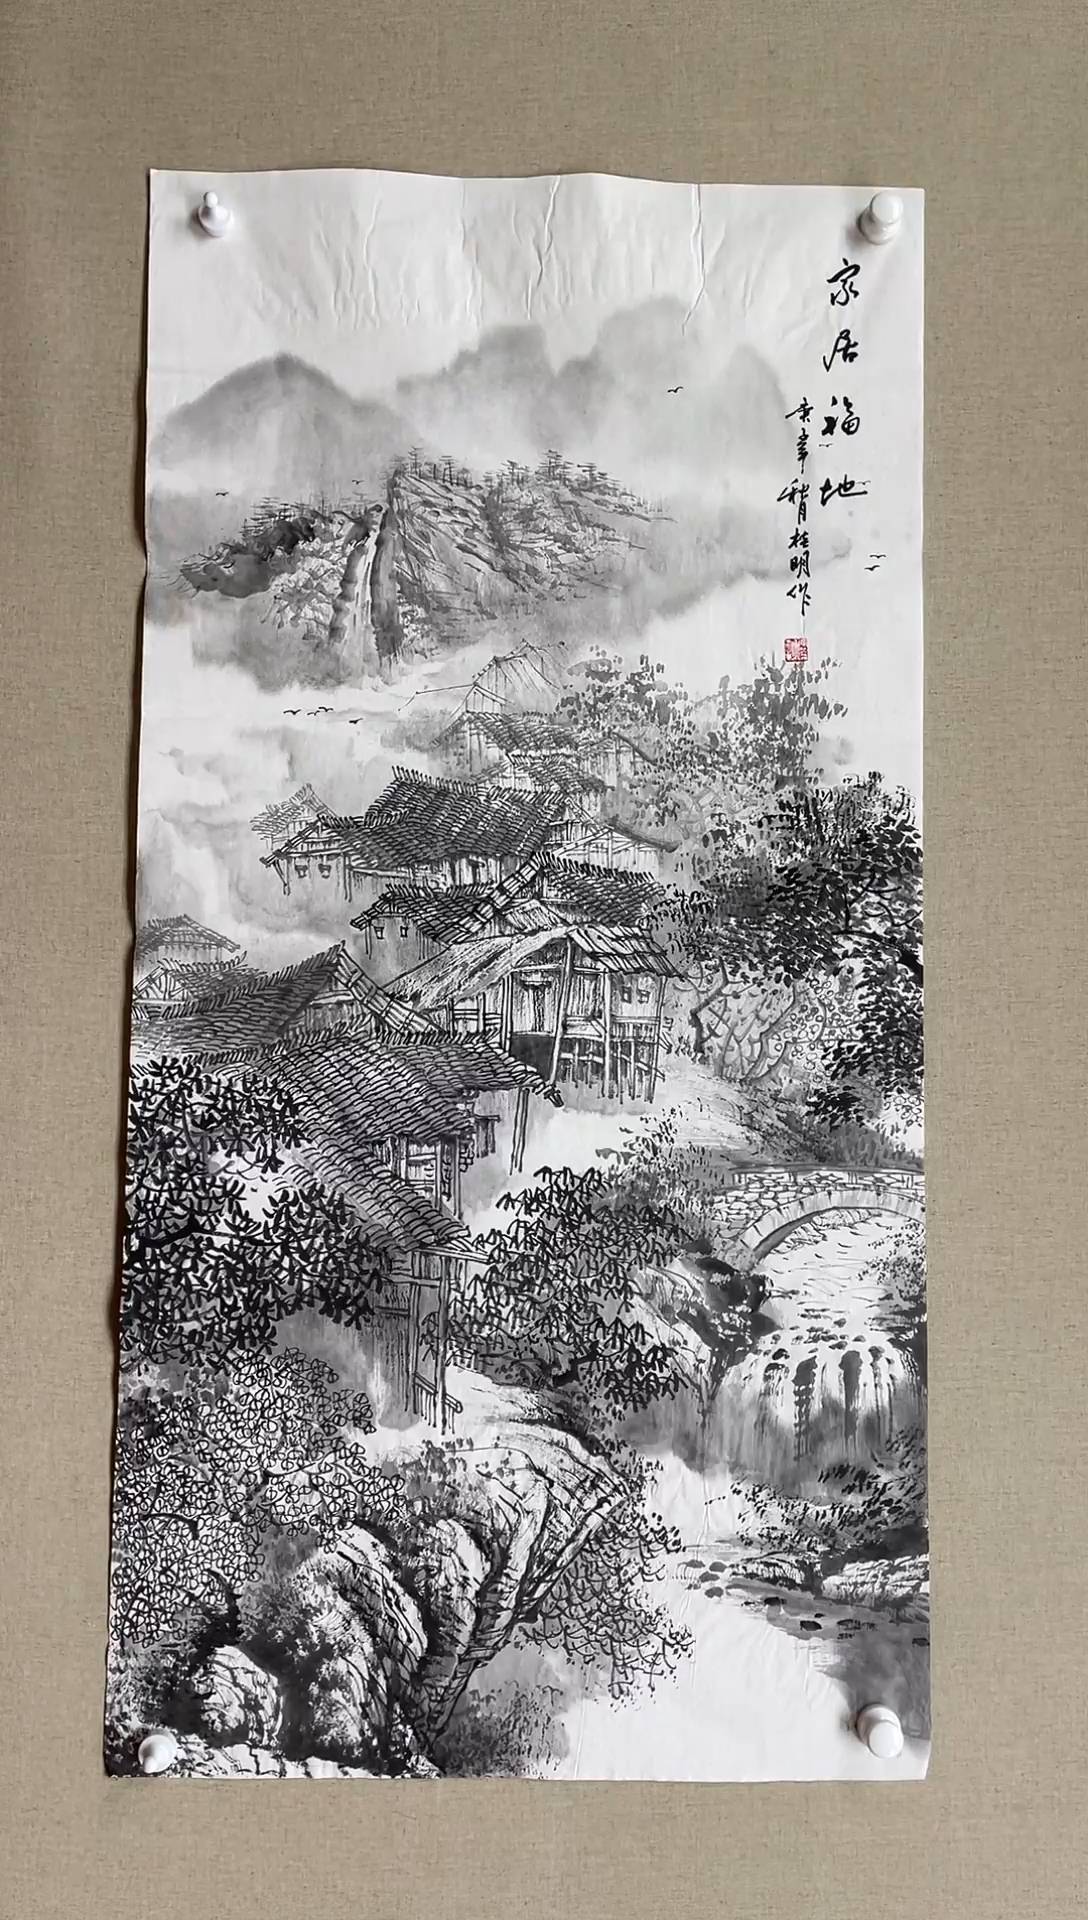 家居福地
秋月桂明作